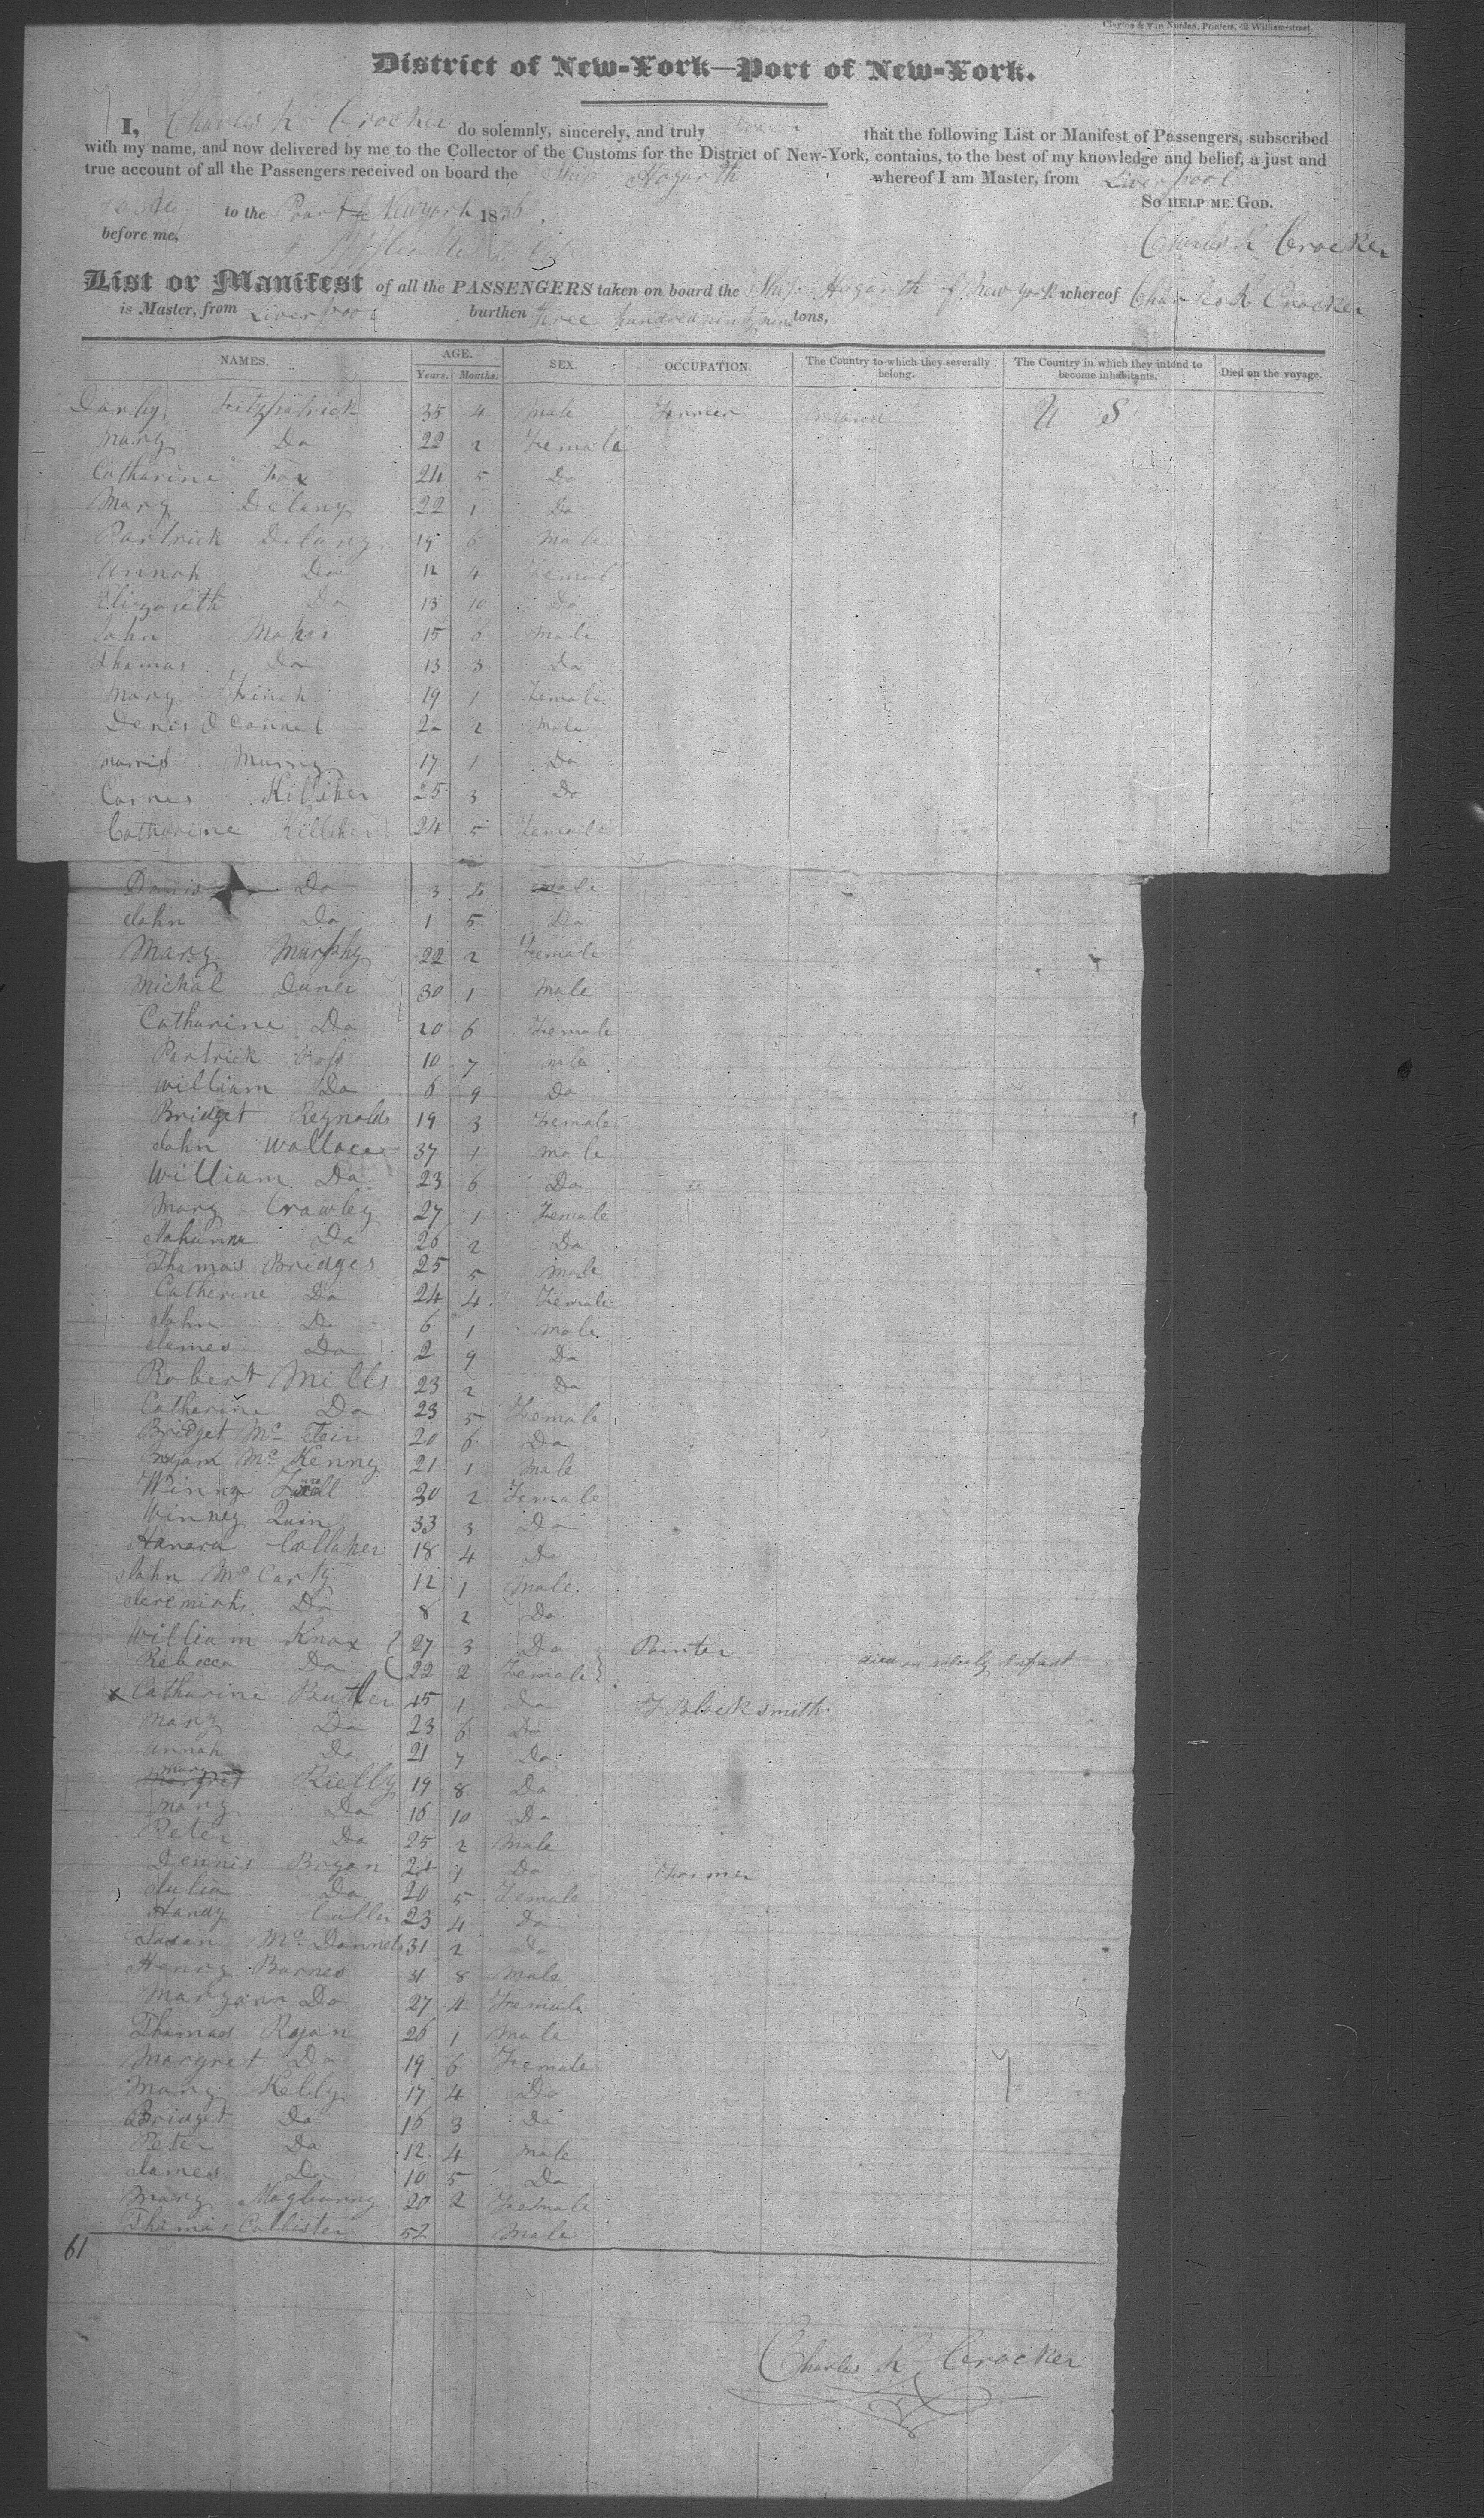 Clayton & Van Norden, Printers, 42 William-street.
District of New-York—Port of New-York.
I, Charles R Crocker do solemnly, sincerely, and truly swear that the following List or Manifest of Passengers, subscribed
with my name, and now delivered by me to the Collector of the Customs for the District of New-York, contains, to the best of my knowledge and belief, a just and
true account of all the Passengers received on board the Ship Hogarth whereof I am Master, from Liverpool
to the Poart of Newyork 1836.
So help me God.
before me,
Charles R Crocker
List or Manifest of all the PASSENGERS taken on board the Ship Hogarth of New york whereof Charles R Crocker
is Master, from Liverpool burthen three hundred ninty nine tons,
NAMES. AGE. Years. Months. SEX. OCCUPATION. The Country to which they severally belong. The Country in which they intend to become inhabitants. Died on the voyage.
Darby Fitzpatrick 35 4 Male Farmer Ireland U S
Mary Do 22 2 Female
Catharine Fox 24 5 Do
Mary Delany 22 1 Do
Partrick Delany 19 6 Male
Annah Do 12 4 Femal
Elizabeth Do 13 10 Do
John Maher 15 6 Male
Thomas Do 13 3 Do
Mary Finch 19 1 Female
Denis O Connel 20 2 Male
Morris Murry 17 1 Do
Cornes Killiher 25 3 Do
Catharine Killiher 24 5 Female
Danis Do 3 4 Male
John Do 1 5 Do
Mary Murphy 22 2 Female
Michal Duner 30 1 Male
Catharine Do 20 6 Female
Partrick Ross 10 7 Male
William Do 6 9 Do
Bridget Reynolds 19 3 Female
John Wallace 37 1 Male
William Do 23 6 Do
Mary Crawley 27 1 Female
Johanna Do 26 2 Do
Thomas Bridges 25 5 Male
Catherine Do 24 4 Female
John Do 6 1 Male
James Do 2 9 Do
Robert Mills 23 2 Do
Catherine Do 23 5 Female
Bridget Mc 20 6 Do
Bryan Mc Kenny 21 1 Male
Winny 30 2 Female
Winney Quin 33 3 Do
Hanora Callaher 18 4 Do
John Mc Carty 12 1 Male
Jeremiah Do 8 2 Do
William Knox 27 3 Do Painter
Rebecca Do 22 2 Female died an Infant
x Catharine Butler 45 1 Do Blacksmith
Mary Do 23 6 Do
Annah Do 21 7 Do
Mary Rielly 19 8 Do
Mary Do 16 10 Do
Peter Do 25 2 Male
Dennis Bogan 24 1 Do Farmer
Julia Do 20 5 Female
Handy 23 4 Do
Susan Mc Donnel 31 2 Do
Henry Barnes 31 8 Male
Maryann Do 27 4 Female
Thomas Ryan 26 1 Male
Margret Do 19 6 Female
Mary Kelly 17 4 Do
Bridget Do 16 3 Do
Peter Do 12 4 Male
James Do 10 5 Do
Mary Magburny 20 2 Female
Thomas Callister 52 Male
61
Charles R Crocker